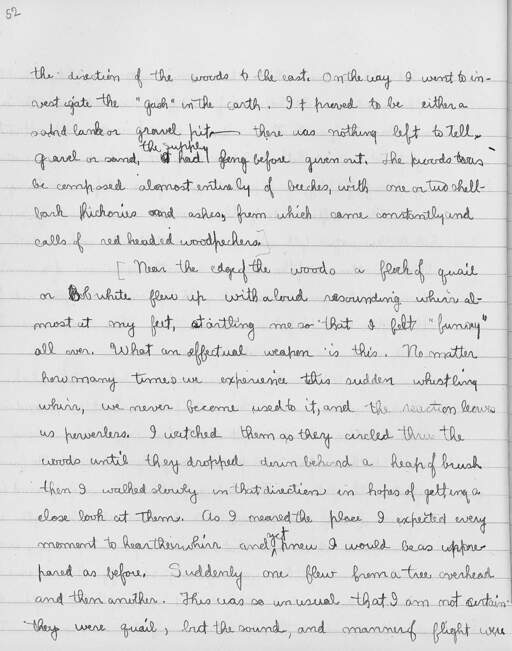 52
the direction of the woods to the east. On the way I went to in-
vestigate the "gash" in the earth. It proved to be either a
sand bank or gravel pit — there was nothing left to tell,
gravel or sand, the supply had long before given out. The woods
be composed almost entirely of beeches, with one or two shell-
bark hickories and ashes, from which came constantly and
calls of red headed woodpeckers.]
[Near the edge of the woods a flock of quail
or Bob white flew up with a loud resounding whirr al-
most at my feet, startling me so that I felt "funny"
all over. What an effectual weapon is this. No matter
how many times we experience this sudden whistling
whirr, we never become used to it, and the reaction leaves
us powerless. I watched them as they circled thru the
woods until they dropped down behind a heap of brush
then I walked slowly in that direction in hopes of getting a
close look at them. As I neared the place I expected every
moment to hear their whirr and yet knew I would be as unpre-
pared as before. Suddenly one flew from a tree overhead
and then another. This was so unusual that I am not certain
they were quail, but the sound, and manner of flight were